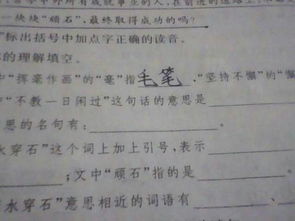 一块块“顽石”,最终取得成功的吗?
标出括号中加点字正确的读音。
的理解填空。
中“挥毫作画”的“毫”指毛笔,“坚持不懈”的“懈
中“不教一日闲过”这句话的意思是
思的名句有:
水穿石”这个词上加上引号,表示
;文中“顽石”指的是
水穿石”意思相近的词语有